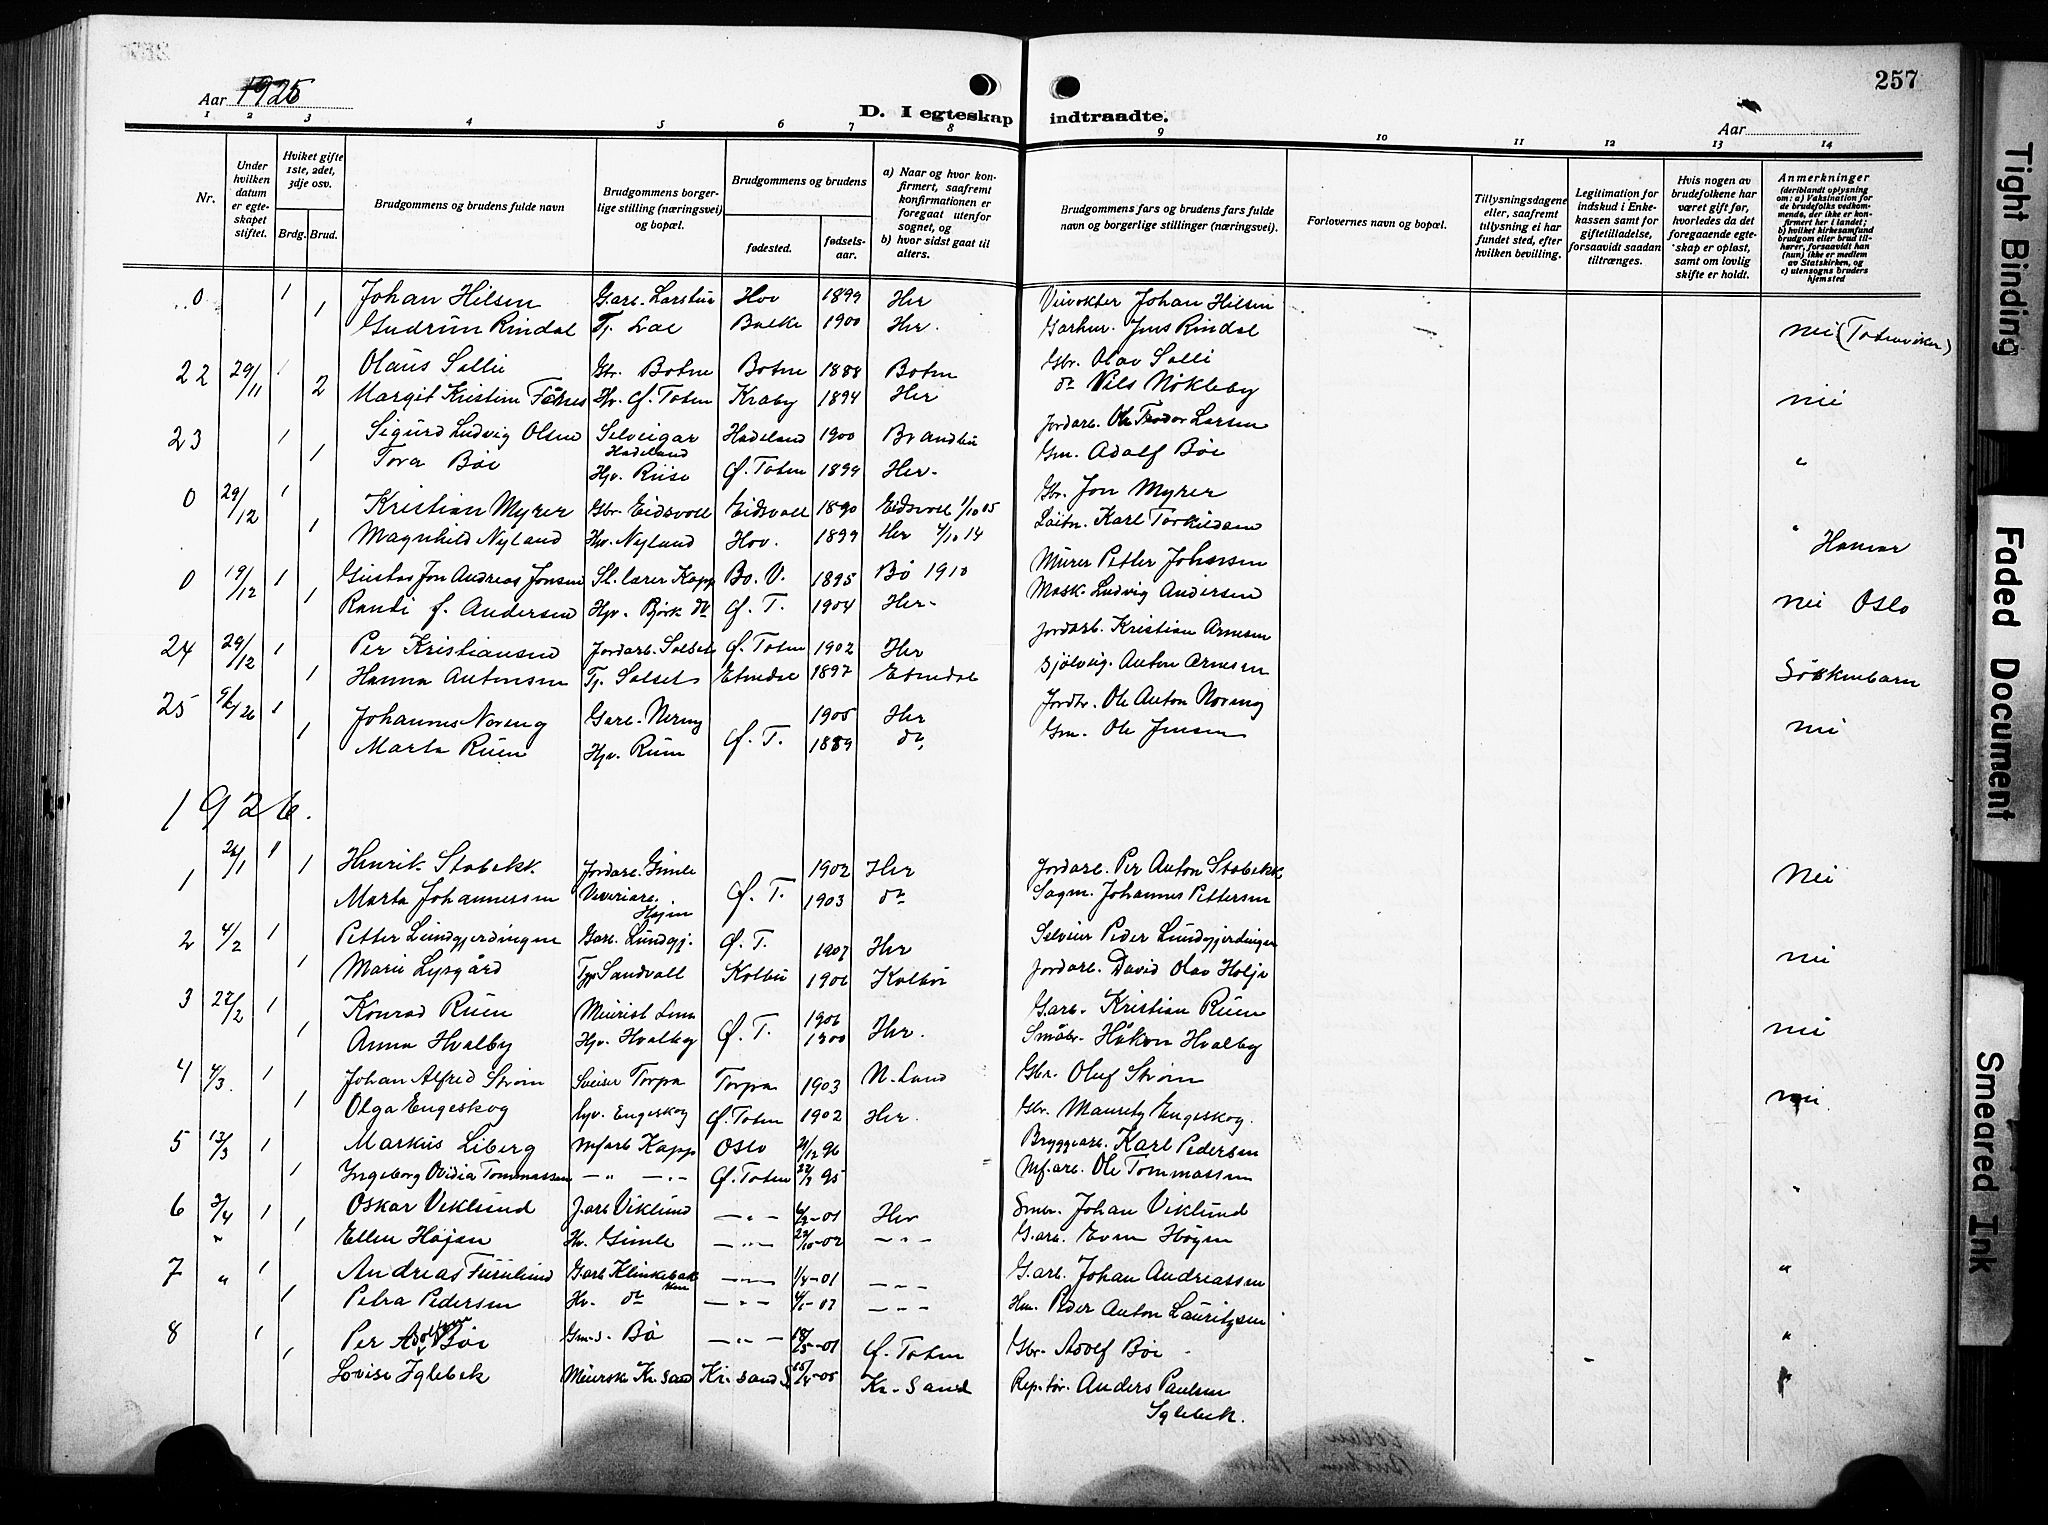 257
Aar 1925
D. I egteskap indtraadte.
Aar
1 2 3 4 5 6 7 8 9 10 11 12 13 14
Nr.
Under hvilken datum er egteskapet stiftet.
Hvilket gifte 1ste, 2det, 3dje osv.
Brdg. Brud.
Brudgommens og brudens fulde navn
Brudgommens borgerlige stilling (næringsvei) og bopæl.
Brudgommens og brudens
fødested.
fødselsaar.
a) Naar og hvor konfirmert, saafremt konfirmationen er foregaat utenfor sognet, og
b) hvor sidst gaat til alters.
Brudgommens fars og brudens fars fulde navn og borgerlige stillinger (næringsvei).
Forlovernes navn og bopæl.
Tillysningsdagene eller, saafremt tillysning ei har fundet sted, efter hvilken bevilling.
Legitimation for indskud i Enkekassen samt for giftetilladelse, forsaavidt saadan tiltrænges.
Hvis nogen av brudefolkene har været gift før, hvorledes da det foregaaende egteskap er opløst, samt om lovlig skifte er holdt.
Anmerkninger
(deriblandt oplysning om: a) Vaksination for de brudefolks vedkommende, der ikke er konfirmert her i landet; b) hvilket kirkesamfund brudgom eller brud tilhører, forsaavidt han (hun) ikke er medlem av Statskirken, og c) utensogns bruders hjemsted
0 1 Johan Hilsen Garb. Larstun Hov 1899 Her Veivokter Johan Hilsen
1 Gudrun Rindal Tj. Lae Balke 1900 Her. Garbr. Jens Rindal nei (Totenviken)
22 29/11 1 Olaus Sollie Gbr. Botne Botne 1888 Botne Gbr. Olav Solli
2 Margit Kristine Hv. Ø. Toten Kraby 1894 Her do Nils Nøkleby nei
23 1 Sigurd Ludvig Olsen Selveigar Hadeland Hadeland 1900 Brandbu Jordarb. Ole Teodor Larsen
1 Tora Bøe Hjv. Riise Ø. Toten 1899 Her. Gm. Adolf Bøe "
0 29/12 1 Kristian Myrer Gbr. Eidsvoll Eidsvoll 1890 Eidsvoll 1/10 05 Gbr. Jon Myrer
1 Magnhild Nyland Hv. Nyland Hov. 1899 Her 4/10 14 Karl Torkildsen " Hamar
0 19/12 1 Gustav Jon Andreas Jonsen St. lærer Kapp Bo. V. 1895 Bö 1910 Murer Petter Johansen
1 Randi f. Andersen Hjv. Björk do Ø. T. 1904 Her. Mask. Ludvig Andersen nei Oslo
24 29/12 1 Per Kristiansen Jordarb. Solset Ø. Toten 1902 Her Jordarb. Kristian Arnesen
1 Hanna Antonsen Tj. Solset Etnedal 1897 Etnedal Sjölveig. Anton Arnesen Söskenbarn
25 1 Johannes Noreng Garb. Nereng 1905 Her Jordbr. Ole Anton Noreng
1 Marta Ruen Hjv. Ruen Ø. T. 1889 do Gm. Ole Jensen nei
1926.
1 1 Henrik Stabekk Jordarb. Gimle 1902 Her Jordarb. Per Anton Stabekk
1 Marta Johannessen Veveriarb. Hajen Ø. T. 1903 do Sagm. Johannes Pettersen Nei
2 4/2 1 Petter Lundgjerdingen Garb. Lundgj. Ø. T. 1907 Her Selveier Peder Lundgjerdingen
1 Marie Lysgård Sandvoll Kolbu 1906 Kolbu Jordarb. David Olav nei
3 27/2 1 Konrad Ruen Lena 1906 Garb. Kristian Ruen
1 Anna Hvalby Hjv. Hvalby Ø. T. 1900 Her. Småbr. Håkon Hvalby nei
4 4/3. 1 Johan Alfred Ström Sveiser Torpa Torpa 1903 N. Land Gbr. Oluf Ström
1 Olga Engeskog hjv. Engeskog Ø. Toten 1902 Her. Gbr. Mauretz Engeskog. nei
5 13/3 1 Markus Liberg mfarb Kapp Oslo 21/12 96 Bryggearb. Karl Pedersen
1 Ingeborg Ovidia Tommassen — " — Ø. Toten 95 Mf.arb. Ole Tommassen "
6 3/4 1 Oskar Viklund Jarb Viklund — " — 01 Her Smbr. Johan Viklund
" 1 Ellen Højen Hv. Gimle — " — 02 — " — G.arb. Even Høyen
7 " 1 Andreas Furulund Garb Klinkebakken — " — 1/4-01 — " — G.arb. Johan Andreassen "
1 Petra Pedersen Hv. do — " — — " — Hm. Peder Anton Lauritzen
8 1 Per Adolfsen Bøe Gm.s. Bø — " — 18/5-01 Ø. Toten Gbr. Adolf Bøe "
1 Lovise Iglebek Kr. sand Kr. sand S. 05 Kr. Sand Rep.tør. Anders Paulsen Iglebek. "
Tight Binding
Faded Document
Smeared Ink